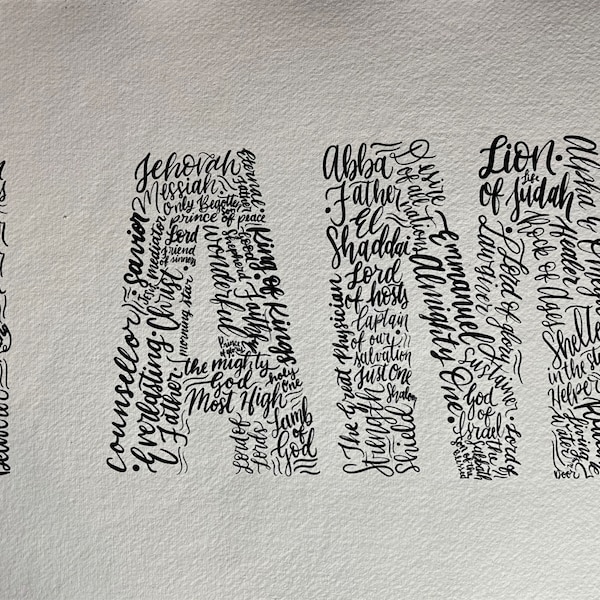 Jehovah
Messiah
only Begotten
prince of peace
Lord
Friend
of sinners
savior
mediator
counsellor
Everlasting
Father
Christ
morning star
Wonderful
Eternal
Father
Good
Shepherd
King of Kings
Truth
the mighty
God
Most High
holy
One
Lord of
Lords
Lamb
of
God
Abba
Father
El
Shaddai
Lord
of hosts
Captain
of our
salvation
Just One
Shalom
The Great Physician
Strength
Shield
Desire
of all nations
Emmanuel
Almighty One
Lion
of Judah
Life
Lawgiver
Lord of glory
Sustainer
God
of
Israel
Lord of
the
Sabbath
Rock of Ages
Healer
Alpha &
Shelter
in the
Helper
Living
Water
Door